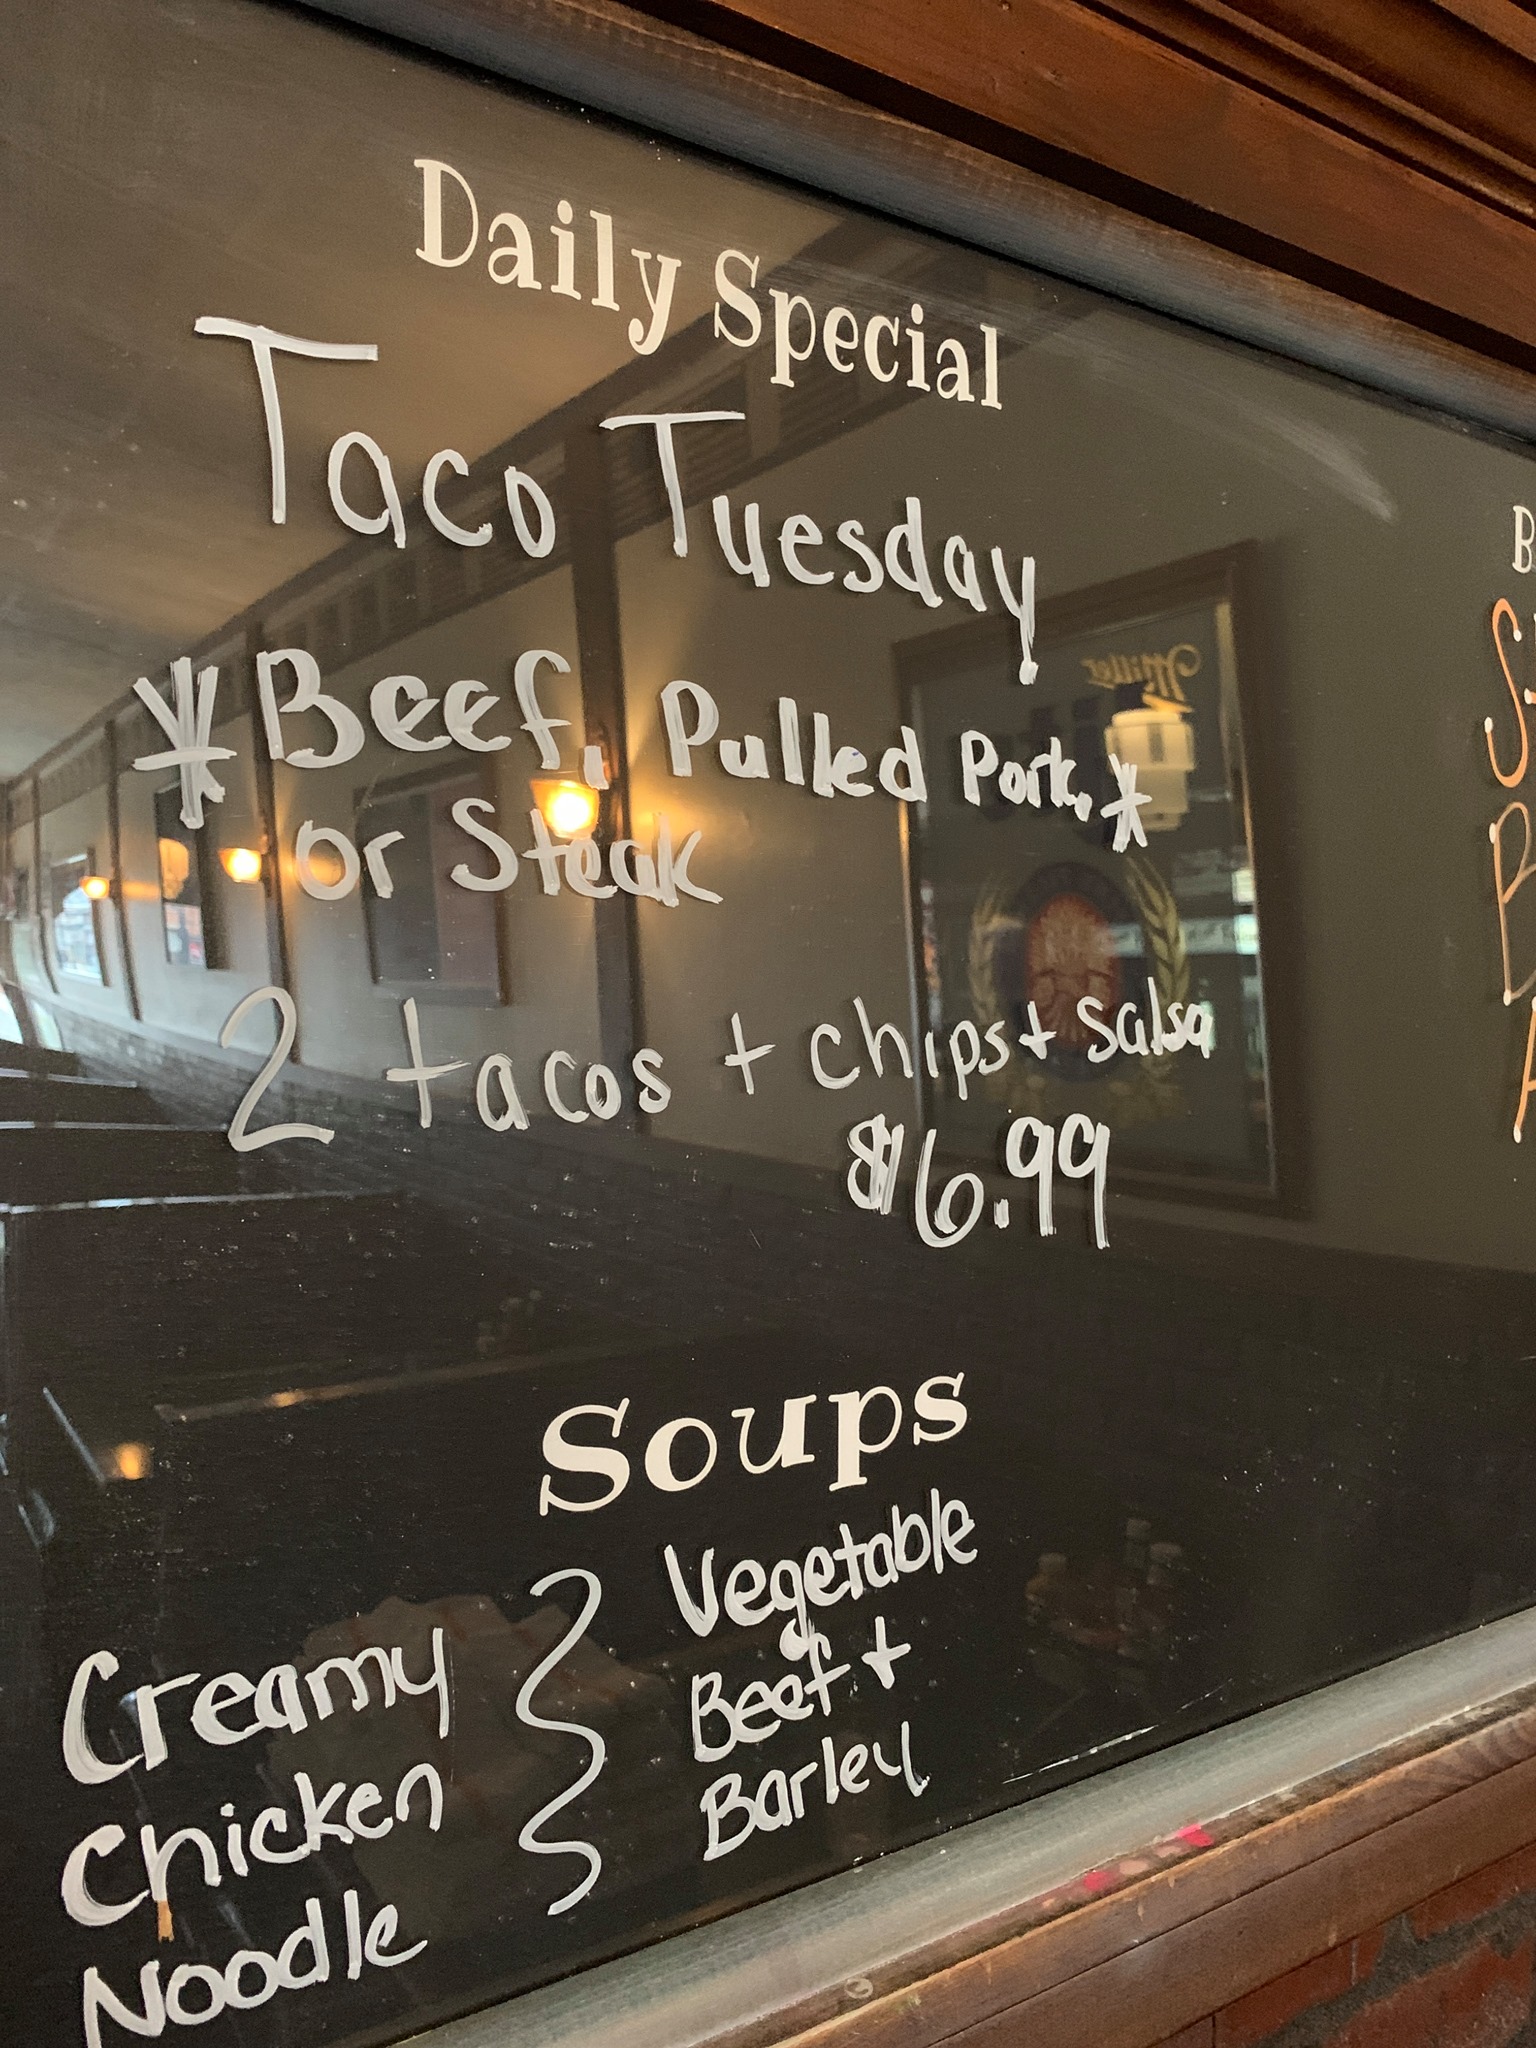 Daily Special
Taco Tuesday
* Beef, Pulled Pork, *
or Steak
2 tacos + chips + salsa
$6.99
Soups
Creamy
Chicken
Noodle
Vegetable
Beef +
Barley
Miller